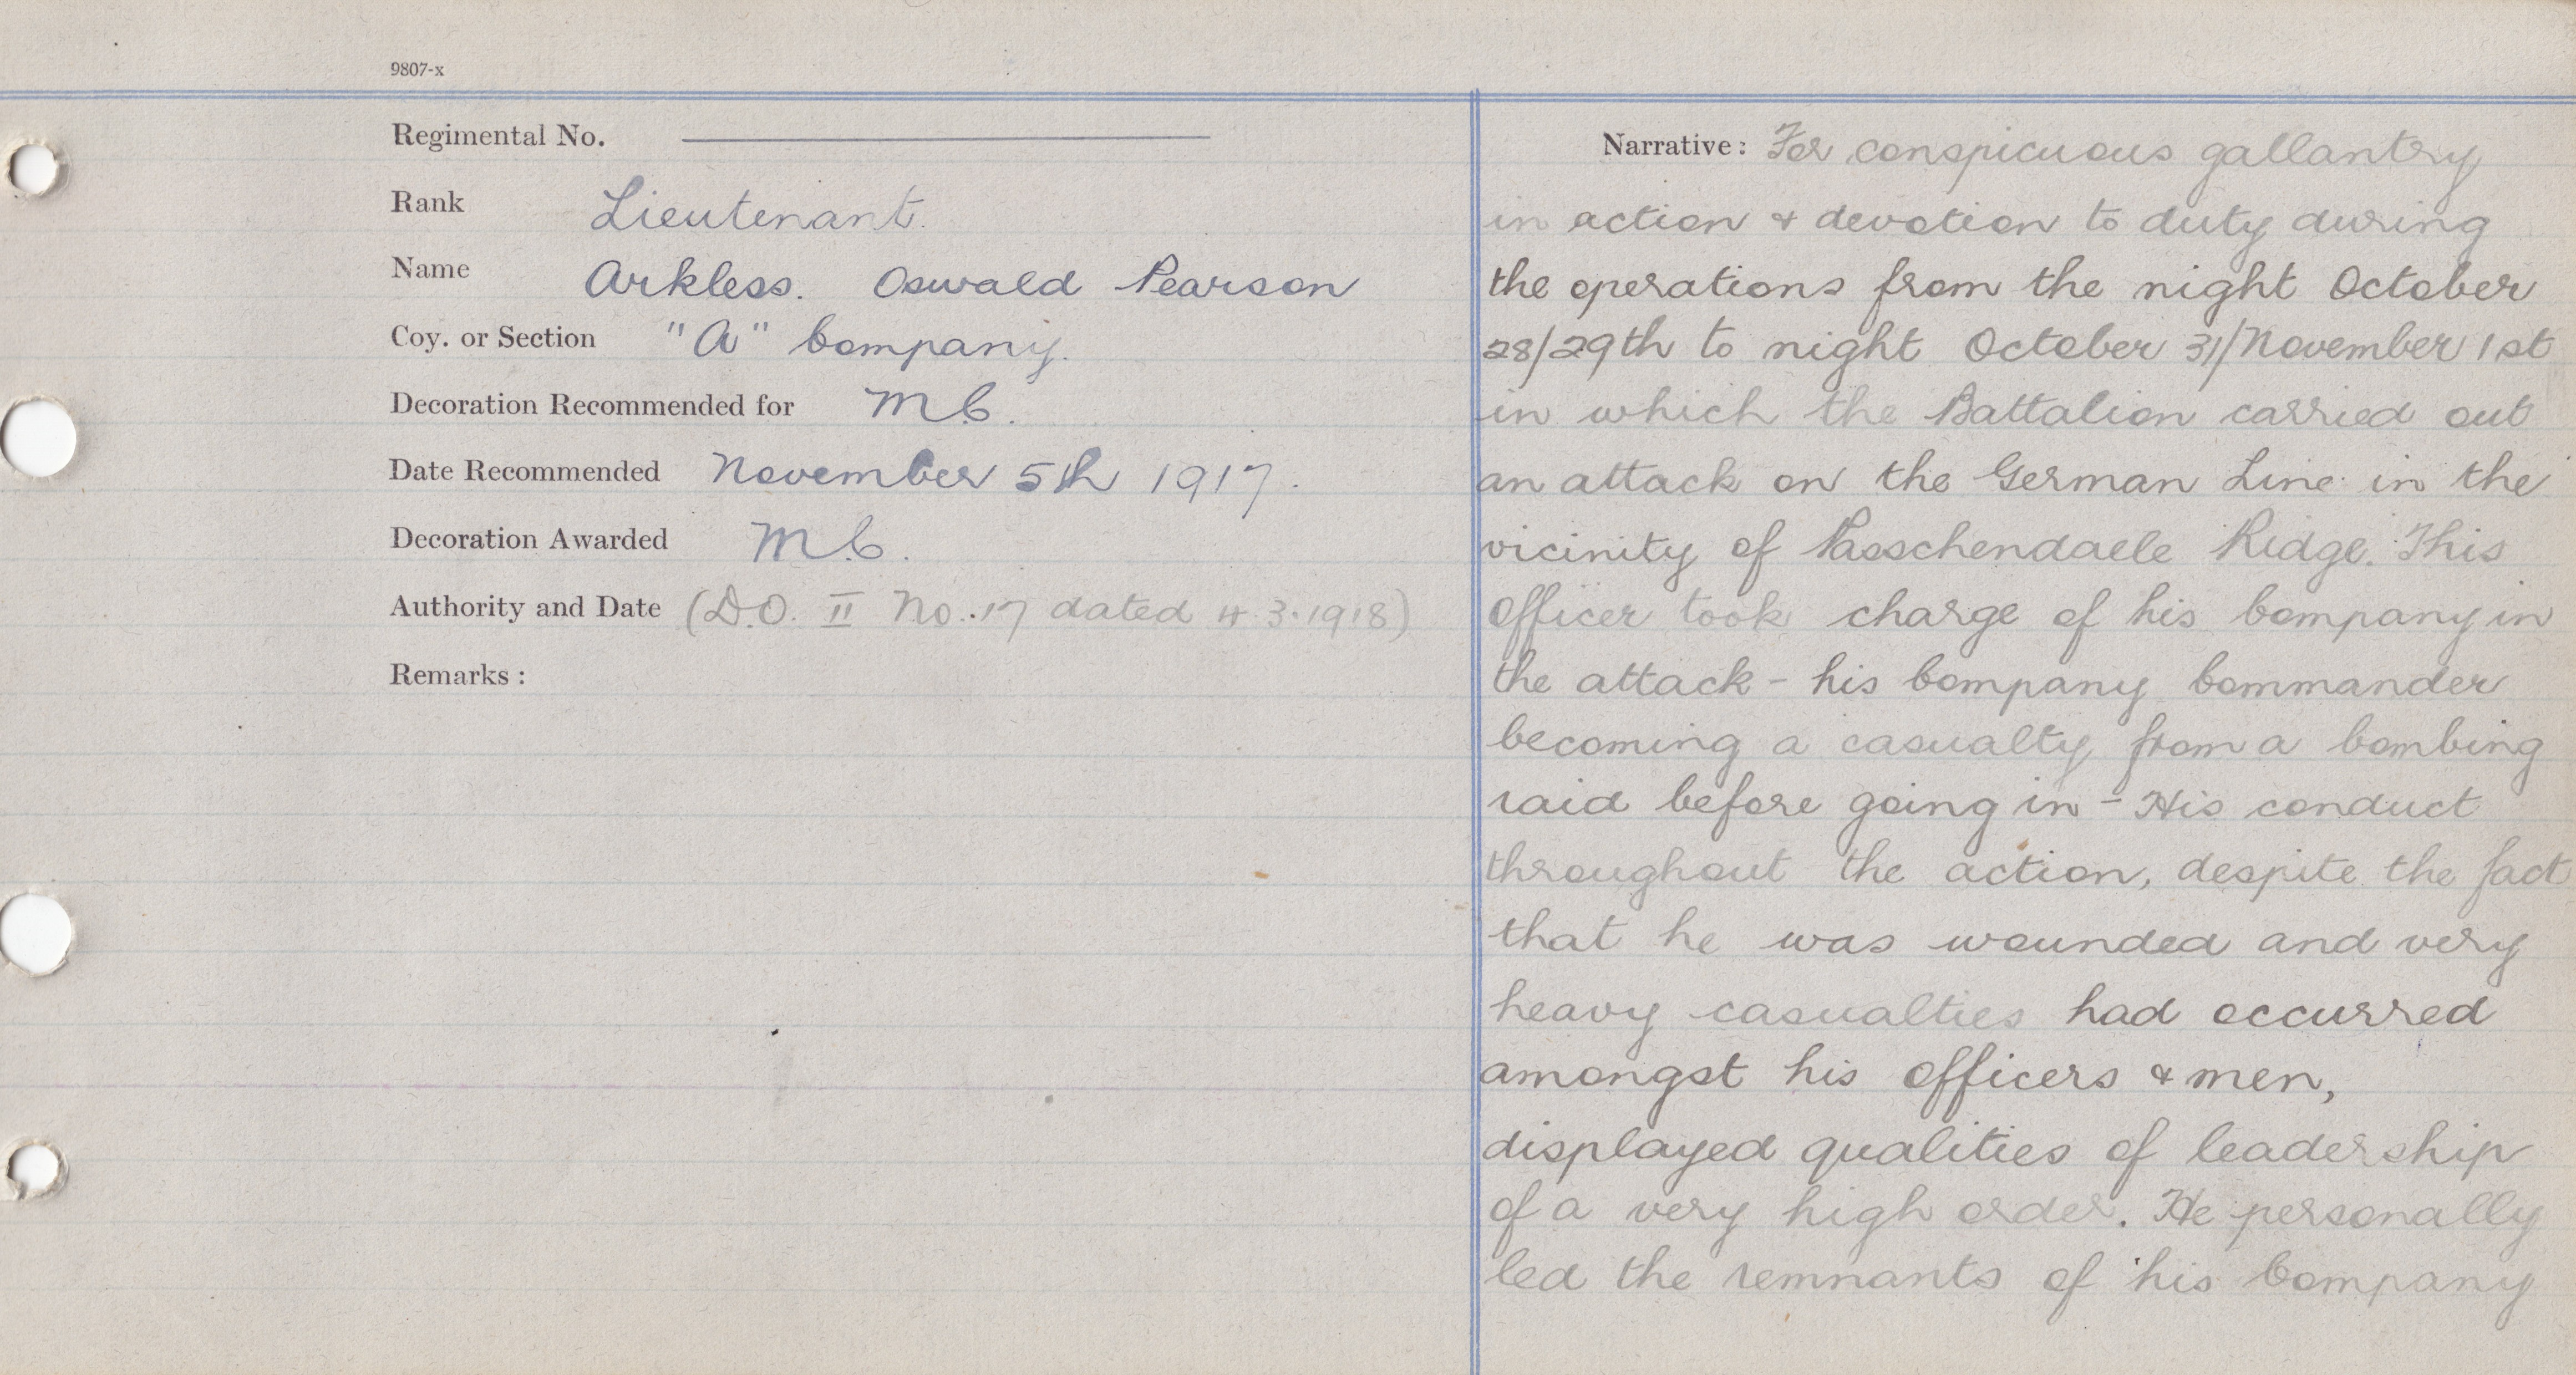 9807-x
Regimental No.
Rank Lieutenant.
Name Arkless. Oswald Pearson
Coy. or Section "A" Company.
Decoration Recommended for M.C.
Date Recommended November 5th 1917.
Decoration Awarded M.C.
Authority and Date (D.O. II No. 17 dated 4.3.1918)
Remarks :
Narrative : For conspicuous gallantry
in action & devotion to duty during
the operations from the night October
28/29th to night October 31/November 1st
in which the Battalion carried out
an attack on the German Line in the
vicinity of Passchendaele Ridge. This
Officer took charge of his Company in
the attack - his Company Commander
becoming a casualty from a bombing
raid before going in - His conduct
throughout the action, despite the fact
that he was wounded and very
heavy casualties had occurred
amongst his officers & men,
displayed qualities of leadership
of a very high order. He personally
led the remnants of his Company